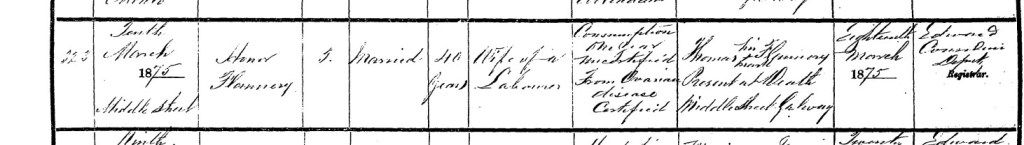 Tenth
323 March
1875
Middle Street
Honor
Flannery
F. Married 40
years
Wife of a
Labourer
Consumption
One year
uncertified
From Ovarian
disease
Certified
Thomas his X mark Flannery
Present at Death
Middle Street Galway
Eighteenth
March
1875
Edward
Considine
Deputy
Registrar.
Ninth
Twenty
Edward